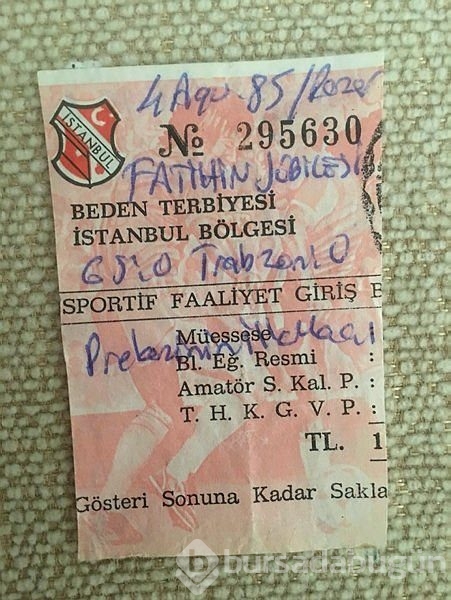 4 Ağu. 85/Pazar
İSTANBUL
№ 295630
FATİHİN JÜBİLESİ
BEDEN TERBİYESİ
İSTANBUL BÖLGESİ
G.S: 0 Trabzon: 0
SPORTİF FAALİYET GİRİŞ B
Prekazinin ilk Maçı
Müessese
Bl. Eğ. Resmi :
Amatör S. Kal. P. :
T. H. K. G. V. P. :
TL. 1
Gösteri Sonuna Kadar Sakla
bursadabugün